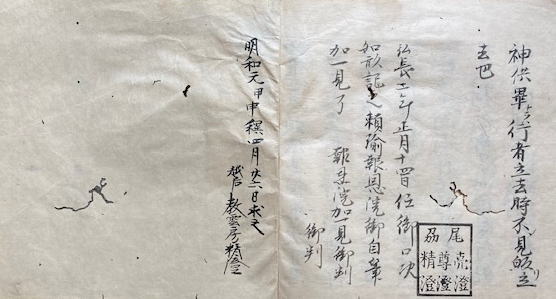 神供畢テ行者立去時不見皈立
去也
弘長二年正月十四日任御口決
如形記之頼瑜報恩院御自筆
加一見了 報恩院加一見御判
御判
尾刕
亮澄
尊澄
精澄
明和元甲申穐四月廿二日求之
教雲房精澄